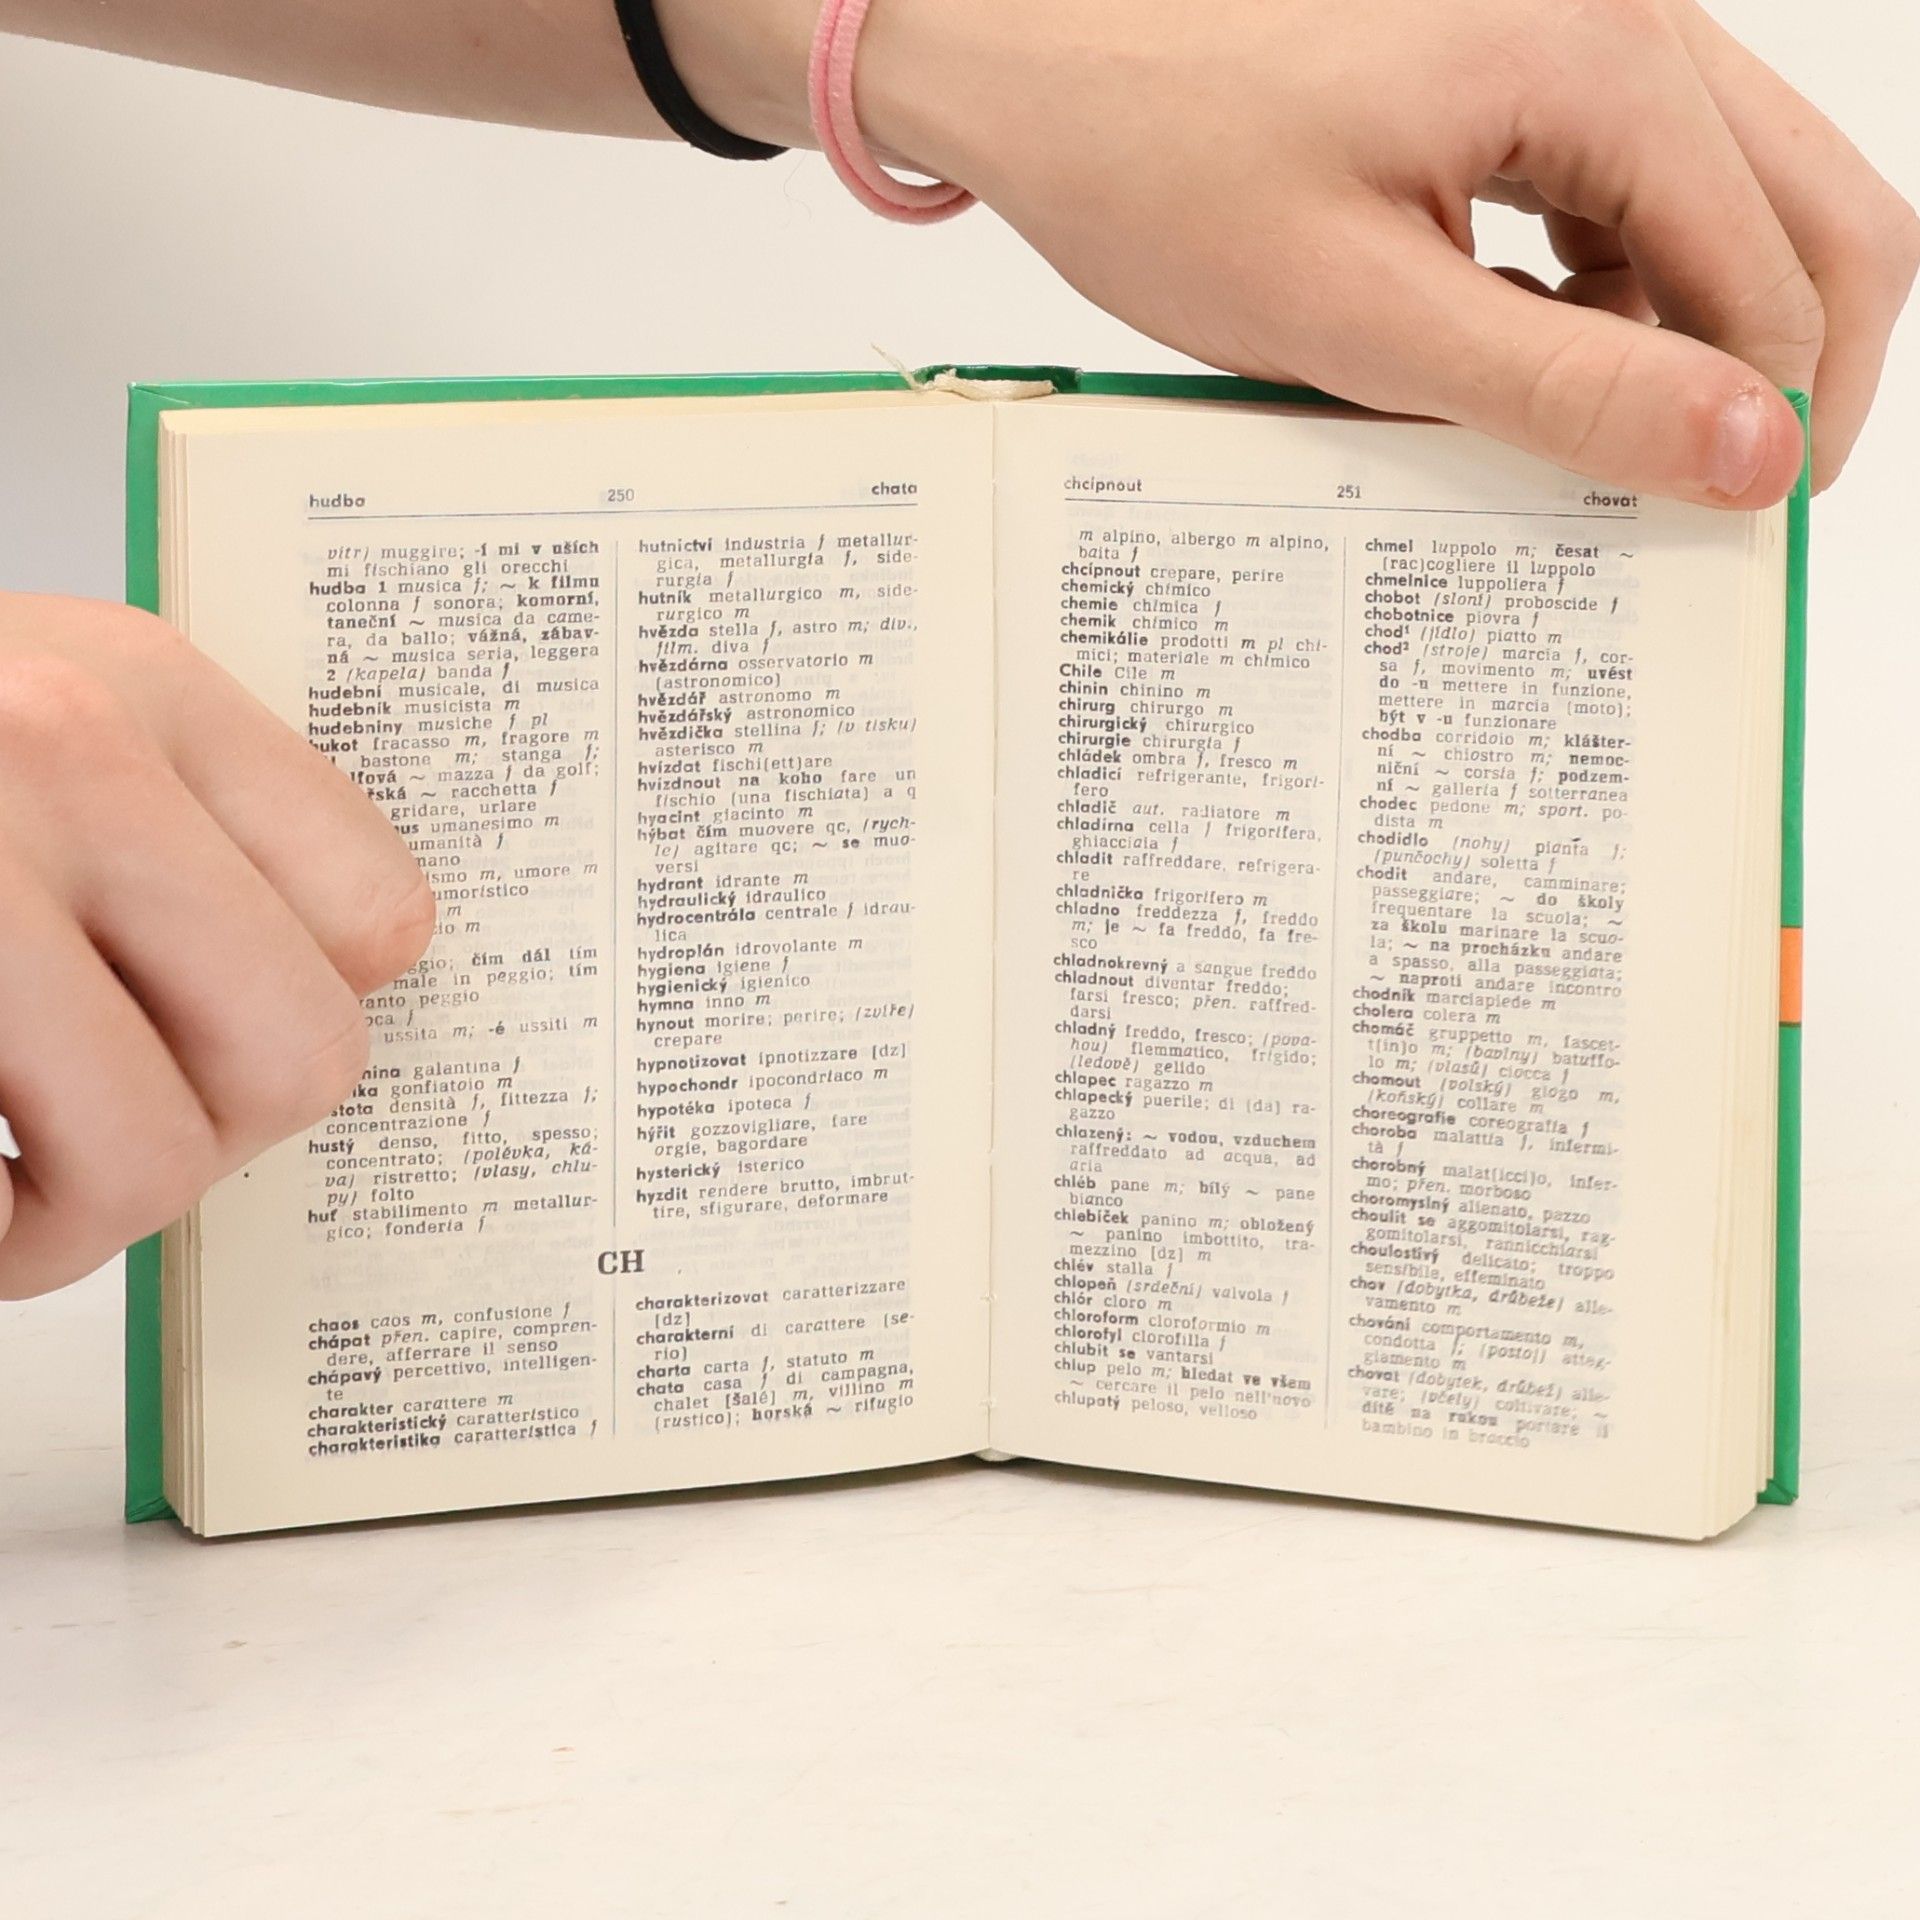 hudba 250 chata
vítr) muggire; -í mi v uších
mi fischiano gli orecchi
hudba 1 musica f; ~ k filmu
colonna f sonora; komorní,
taneční ~ musica da came-
ra, da ballo; vážná, zábav-
ná ~ musica seria, leggera
2 (kapela) banda f
hudební musicale, di musica
hudebník musicista m
hudebniny musiche f pl
hukot fracasso m, fragore m
bastone m; stanga f;
~ mazza f da golf;
~ racchetta f
gridare, urlare
umanesimo m
umanità f
m, umore m
umoristico
m
m
čím dál tím
male in peggio; tím
peggio
f
ussita m; -é ussiti m
galantina f
gonfiatoio m
densità f, fittezza f;
concentrazione f
hustý denso, fitto, spesso;
concentrato; (polévka, ká-
va) ristretto; (vlasy, chlu-
py) folto
huť stabilimento m metallur-
gico; fonderia f
hutnictví industria f metallur-
gica, metallurgia f, side-
rurgia f
hutník metallurgico m, side-
rurgico m
hvězda stella f, astro m; div.,
film. diva f
hvězdárna osservatorio m
(astronomico)
hvězdář astronomo m
hvězdářský astronomico
hvězdička stellina f; (v tisku)
asterisco m
hvízdat fischi(ett)are
hvízdnout na koho fare un
fischio (una fischiata) a q
hyacint giacinto m
hýbat čím muovere qc, (rych-
le) agitare qc; ~ se muo-
versi
hydrant idrante m
hydraulický idraulico
hydrocentrála centrale f idrau-
lica
hydroplán idrovolante m
hygiena igiene f
hygienický igienico
hymna inno m
hynout morire; perire; (zvíře)
crepare
hypnotizovat ipnotizzare [dz]
hypochondr ipocondriaco m
hypotéka ipoteca f
hýřit gozzovigliare, fare
orgie, bagordare
hysterický isterico
hyzdit rendere brutto, imbrut-
tire, sfigurare, deformare
CH
chaos caos m, confusione f
chápat přen. capire, compren-
dere, afferrare il senso
chápavý percettivo, intelligen-
te
charakter carattere m
charakteristický caratteristico
charakteristika caratteristica f
charakterizovat caratterizzare
[dz]
charakterní di carattere (se-
rio)
charta carta f, statuto m
chata casa f di campagna,
chalet [šalé] m, villino m
(rustico); horská ~ rifugio
chcípnout 251 chovat
m alpino, albergo m alpino,
baita f
chcípnout crepare, perire
chemický chimico
chemie chimica f
chemik chimico m
chemikálie prodotti m pl chi-
mici; materiale m chimico
Chile Cile m
chinin chinino m
chirurg chirurgo m
chirurgický chirurgico
chirurgie chirurgia f
chládek ombra f, fresco m
chladicí refrigerante, frigori-
fero
chladič aut. radiatore m
chladírna cella f frigorifera,
ghiacciaia f
chladit raffreddare, refrigera-
re
chladnička frigorifero m
chladno freddezza f, freddo
m; je ~ fa freddo, fa fre-
sco
chladnokrevný a sangue freddo
chladnout diventar freddo;
farsi fresco; přen. raffred-
darsi
chladný freddo, fresco; (pova-
hou) flemmatico, frigido;
(ledově) gelido
chlapec ragazzo m
chlapecký puerile; di (da) ra-
gazzo
chlazený: ~ vodou, vzduchem
raffreddato ad acqua, ad
aria
chléb pane m; bílý ~ pane
bianco
chlebíček panino m; obložený
~ panino imbottito, tra-
mezzino [dz] m
chlév stalla f
chlopeň (srdeční) valvola f
chlór cloro m
chloroform cloroformio m
chlorofyl clorofilla f
chlubit se vantarsi
chlup pelo m; hledat ve všem
~ cercare il pelo nell'uovo
chlupatý peloso, velloso
chmel luppolo m; česat ~
(rac)cogliere il luppolo
chmelnice luppoliera f
chobot (sloní) proboscide f
chobotnice piovra f
chod¹ (jídlo) piatto m
chod² (stroje) marcia f, cor-
sa f, movimento m; uvést
do -u mettere in funzione,
mettere in marcia (moto);
být v -u funzionare
chodba corridoio m; klášter-
ní ~ chiostro m; nemoc-
niční ~ corsia f; podzem-
ní ~ galleria f sotterranea
chodec pedone m; sport. po-
dista m
chodidlo (nohy) pianta f;
(punčochy) soletta f
chodit andare, camminare;
passeggiare; ~ do školy
frequentare la scuola; ~
za školu marinare la scuo-
la; ~ na procházku andare
a spasso, alla passeggiata;
~ naproti andare incontro
chodník marciapiede m
cholera colera m
chomáč gruppetto m, fascet-
t(in)o m; (bavlny) batuffo-
lo m; (vlasů) ciocca f
chomout (volský) giogo m,
(koňský) collare m
choreografie coreografia f
choroba malattia f, infermi-
tà f
chorobný malat(icci)o, infer-
mo; přen. morboso
choromyslný alienato, pazzo
choulit se aggomitolarsi, rag-
gomitolarsi, rannicchiarsi
choulostivý delicato; troppo
sensibile, effeminato
chov (dobytka, drůbeže) alle-
vamento m
chování comportamento m,
condotta f; (postoj) atteg-
giamento m
chovat (dobytek, drůbež) alle-
vare; (včely) coltivare; ~
dítě na rukou portare il
bambino in braccio